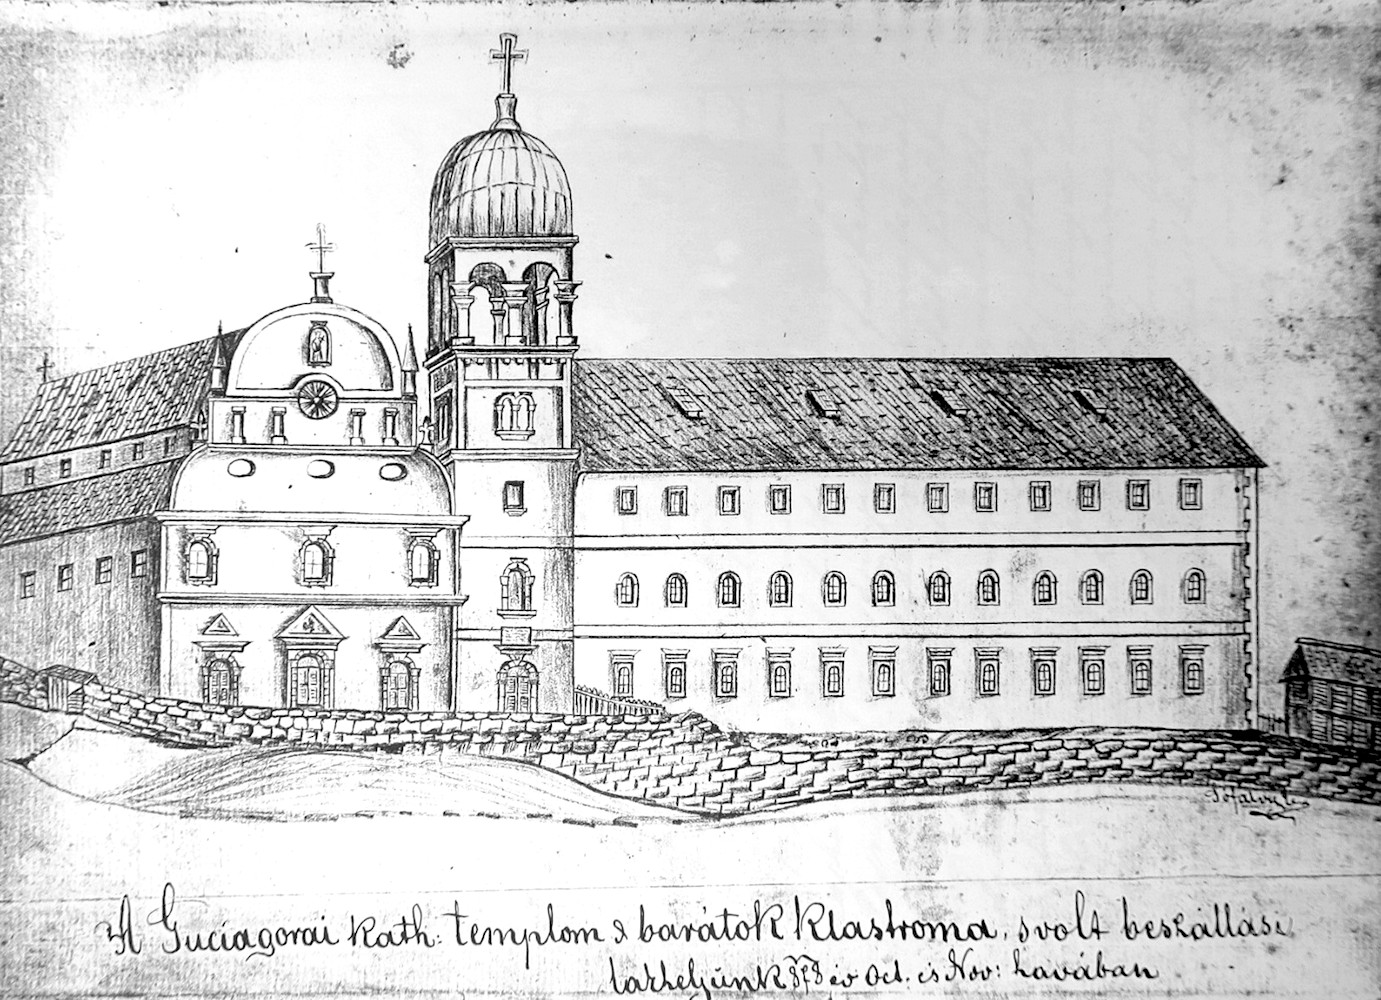 Sófalvi
A Guciagorai Kath: templom s barátok klastroma, s volt beszállási
lakhelyünk 878 év Oct. és Nov: havában